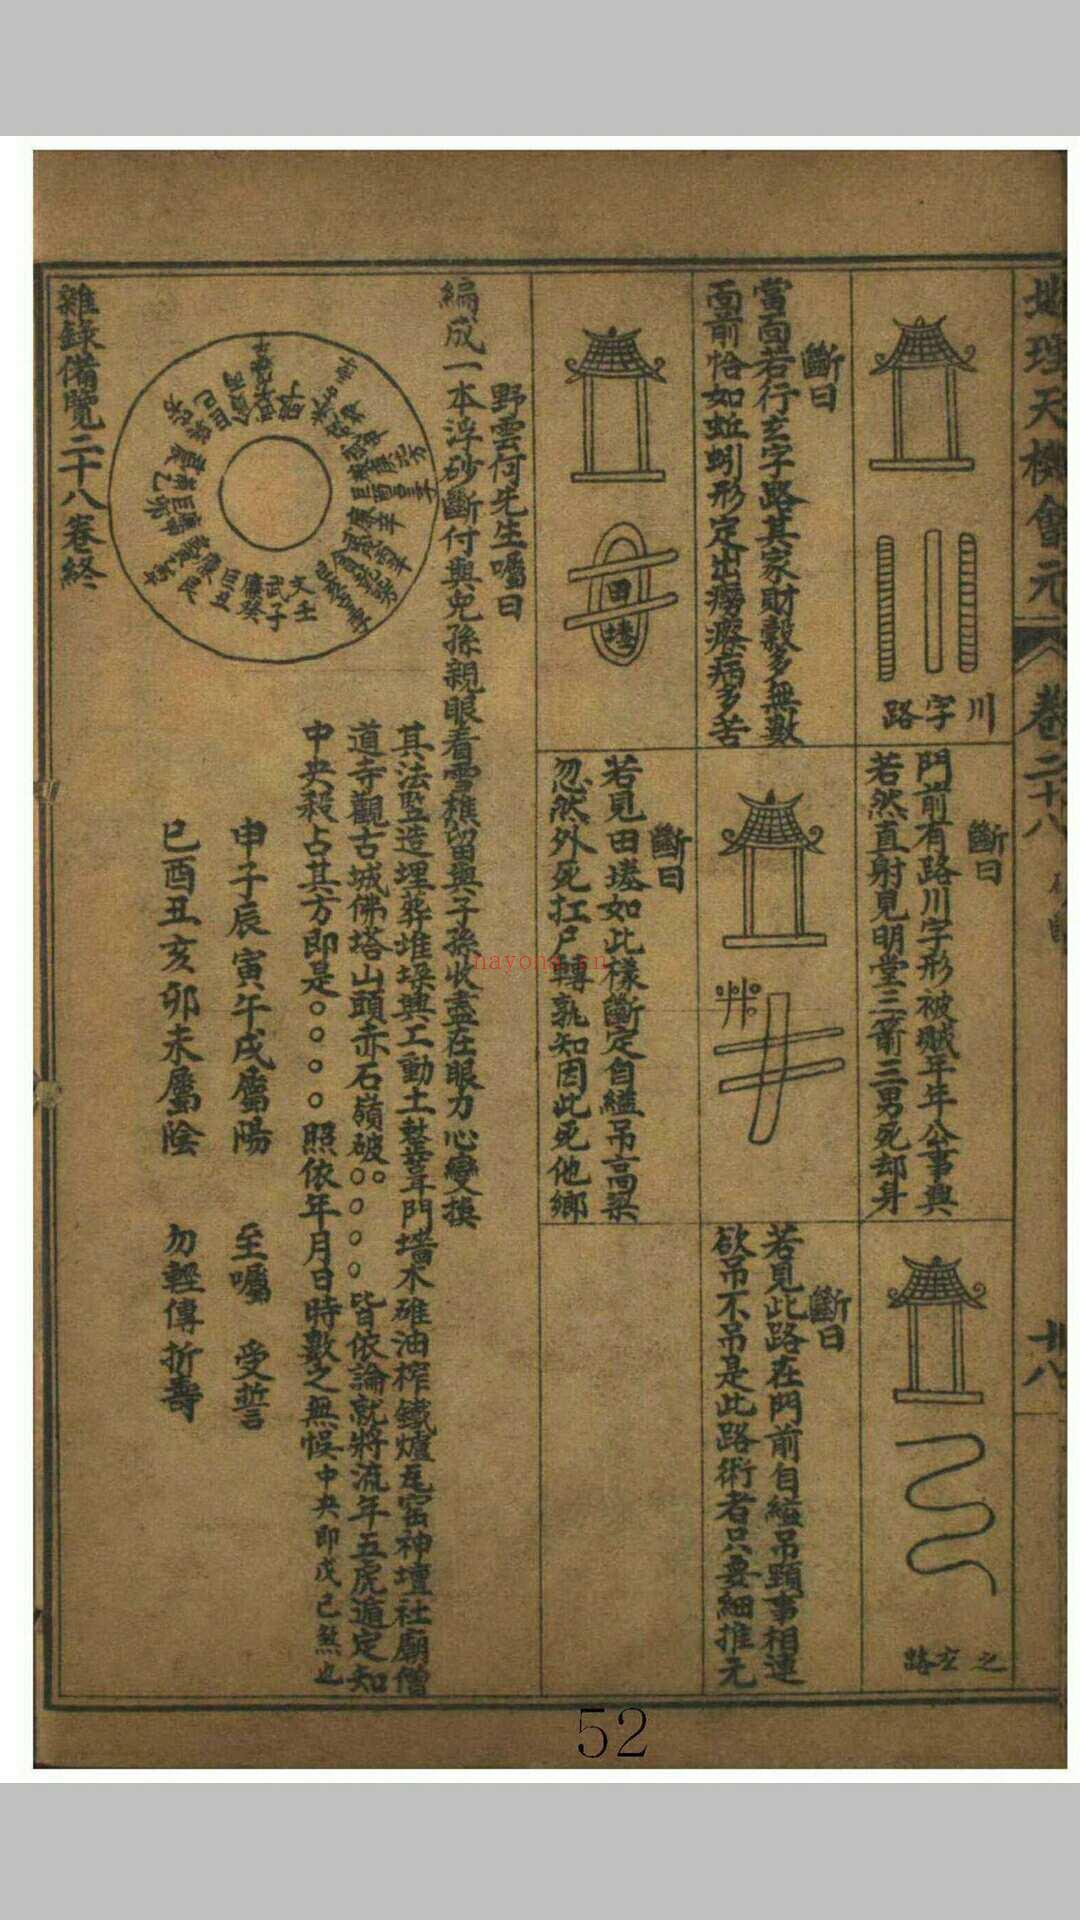 地理天機會元
卷二十八
廿八
川字路
斷曰
門前有路川字形被賊年年公事興
若然直射見明堂三箭三男死却身
之玄路
斷曰
當面若行玄字路其家財穀多無數
面前恰如蚯蚓形定出癆瘵病多苦
斷曰
若見此路在門前自縊吊頸事相連
欲吊不吊是此路術者只要細推元
田塝
斷曰
若見田塝如此樣斷定自縊吊高梁
忽然外死扛尸轉孰知因此死他鄉
野雲何先生囑曰
編成一本浮砂斷付與兒孫親眼看雪樵留與子孫收盡在眼力心變換
其法監造埋葬堆垜興工動土整葺門墻木碓油榨鐵爐瓦窑神壇社廟僧
道寺觀古城佛塔山頭赤石嶺破。。。。皆依論就將流年五虎遁定知
中央殺占其方即是。。。。照依年月日時數之無悞中央即戊己煞也
文壬
武子
廉癸
巨丑
申子辰寅午戌屬陽 至囑 受誓
巳酉丑亥卯未屬陰 勿輕傳折壽
雜錄備覽二十八卷終
nayona.cn
52